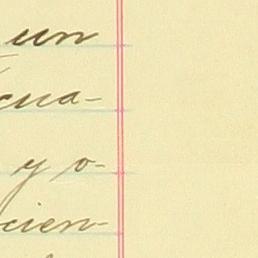 un
cua-
y o-
cien-